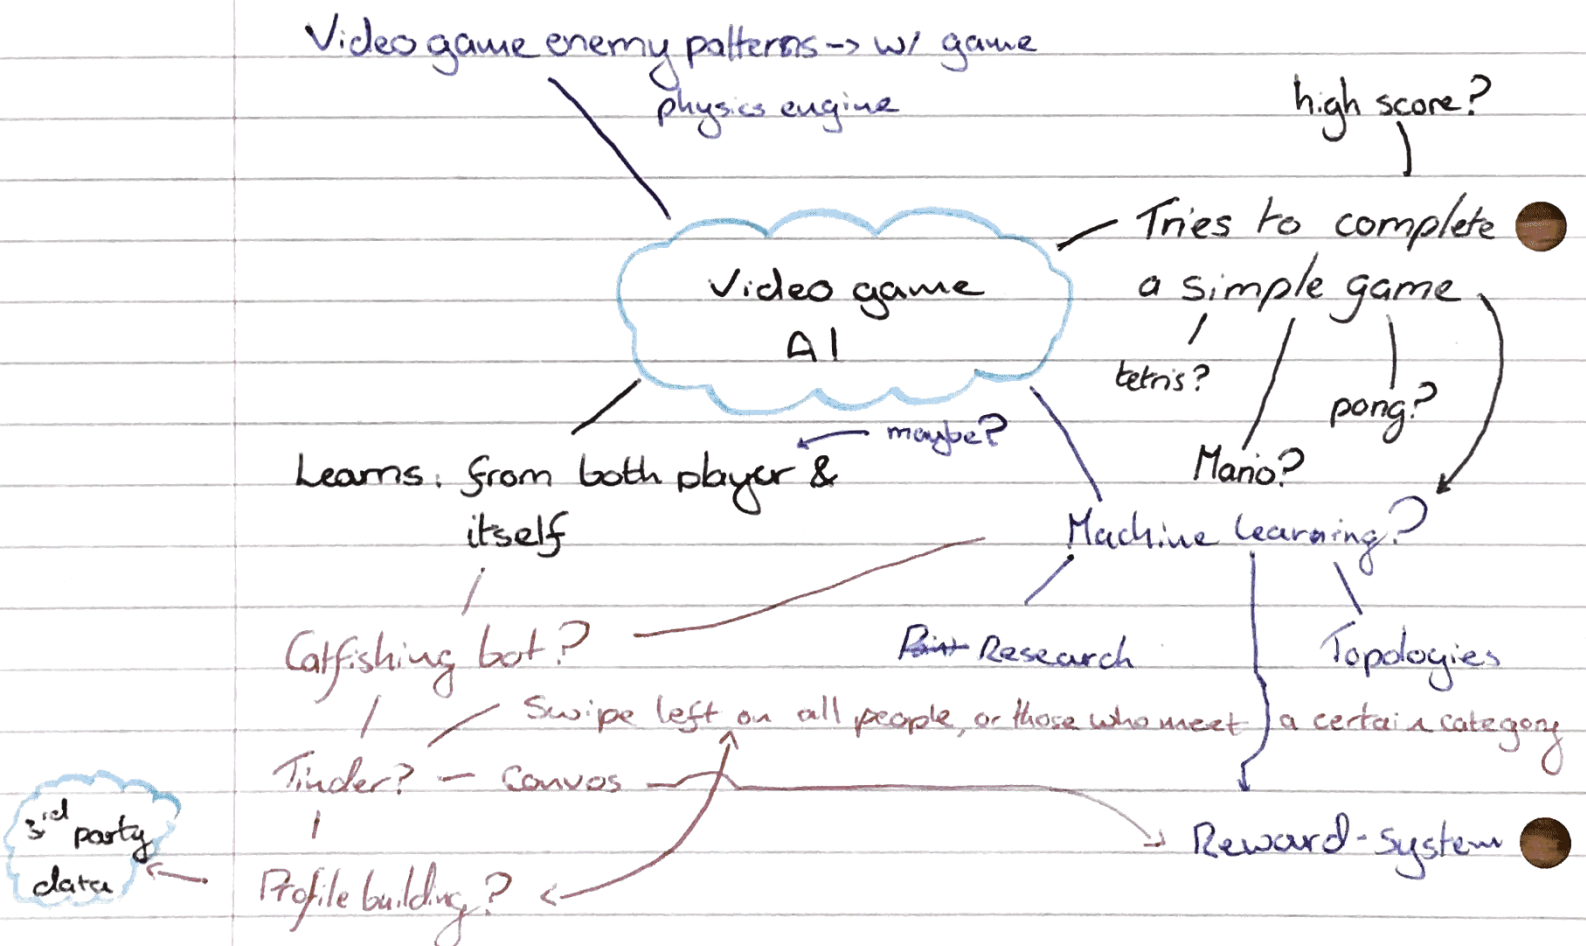 Video game enemy patterns -> w/ game
physics engine
high score?
Tries to complete
a simple game
Video game
AI
tetris?
pong?
maybe?
Mario?
Learns. from both player &
itself
Machine Learning?
Catfishing bot?
Research
Topologies
Swipe left on all people, or those who meet a certain category
Tinder? - Convos
3rd party
data
Reward-system
Profile building?